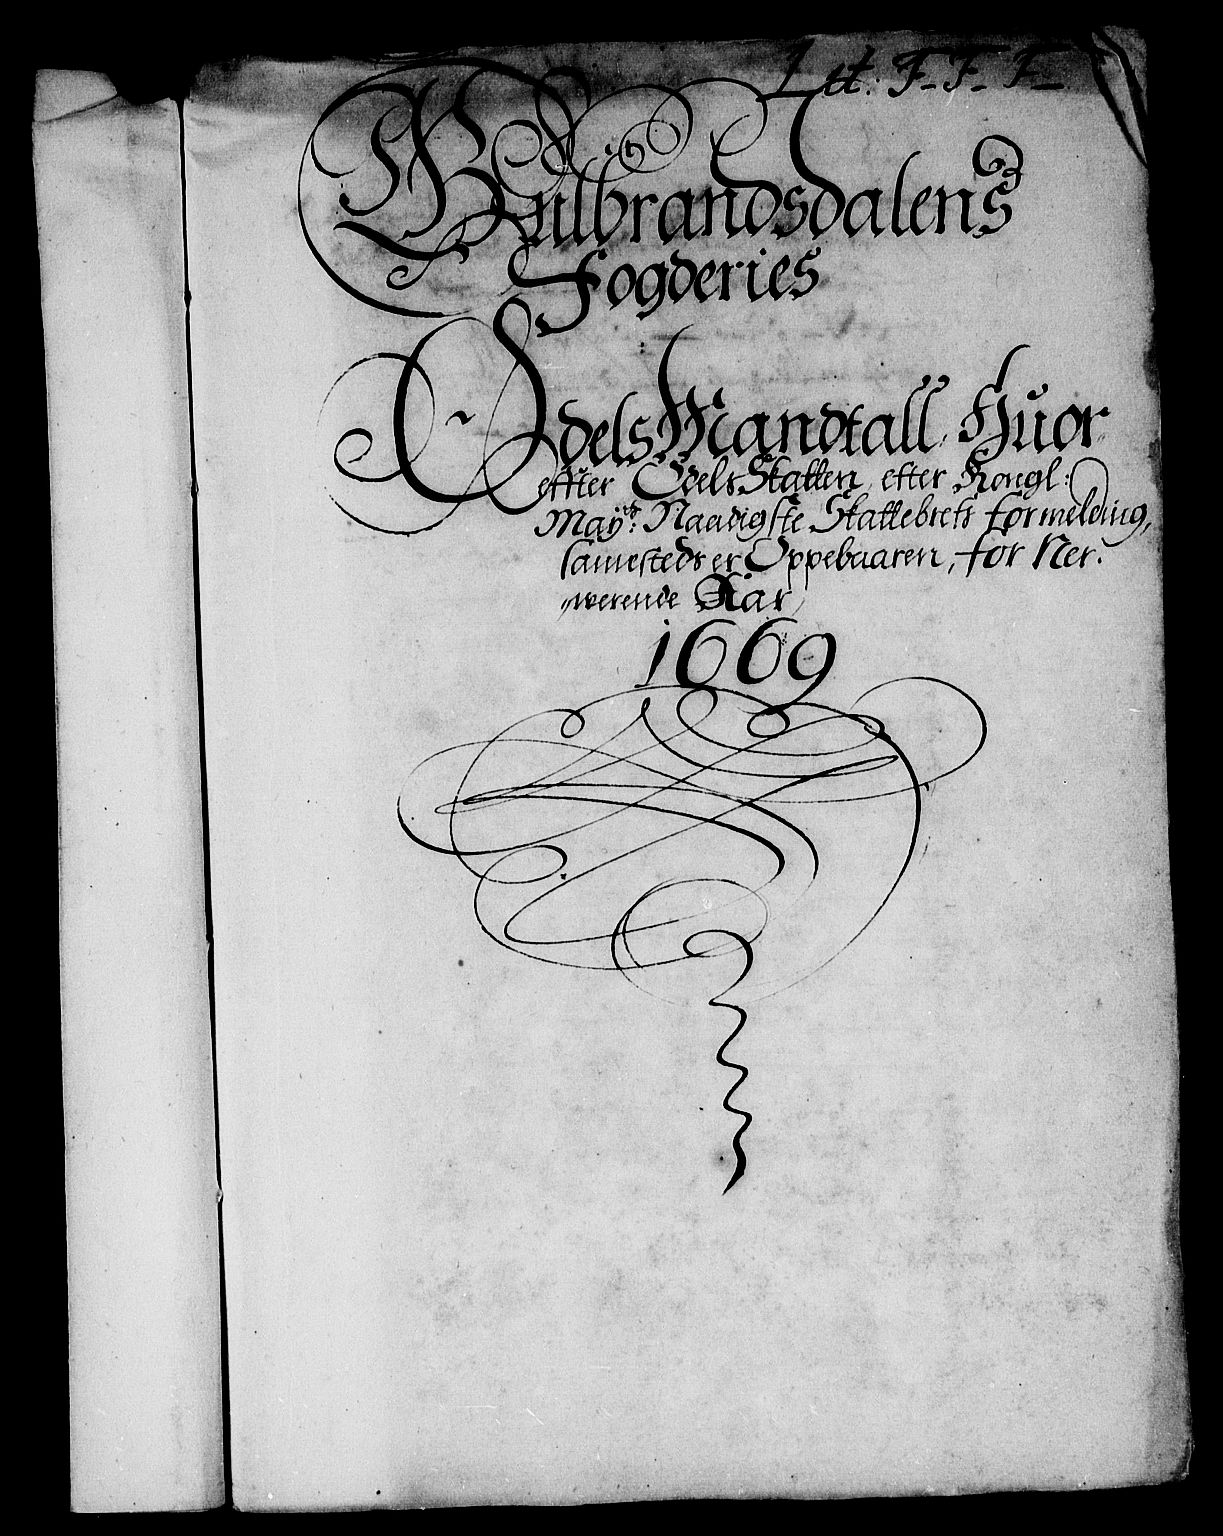 Litt: F. F. F.
Gulbrandsdalens
Fogderies
Odels Mandtall, Huor
effter Odels Skatten, efter Kongl:
Mayts: Naadigste Skattebrefs formelding,
samesteds er Oppebaaren, for Ner-
werende Aar
1669